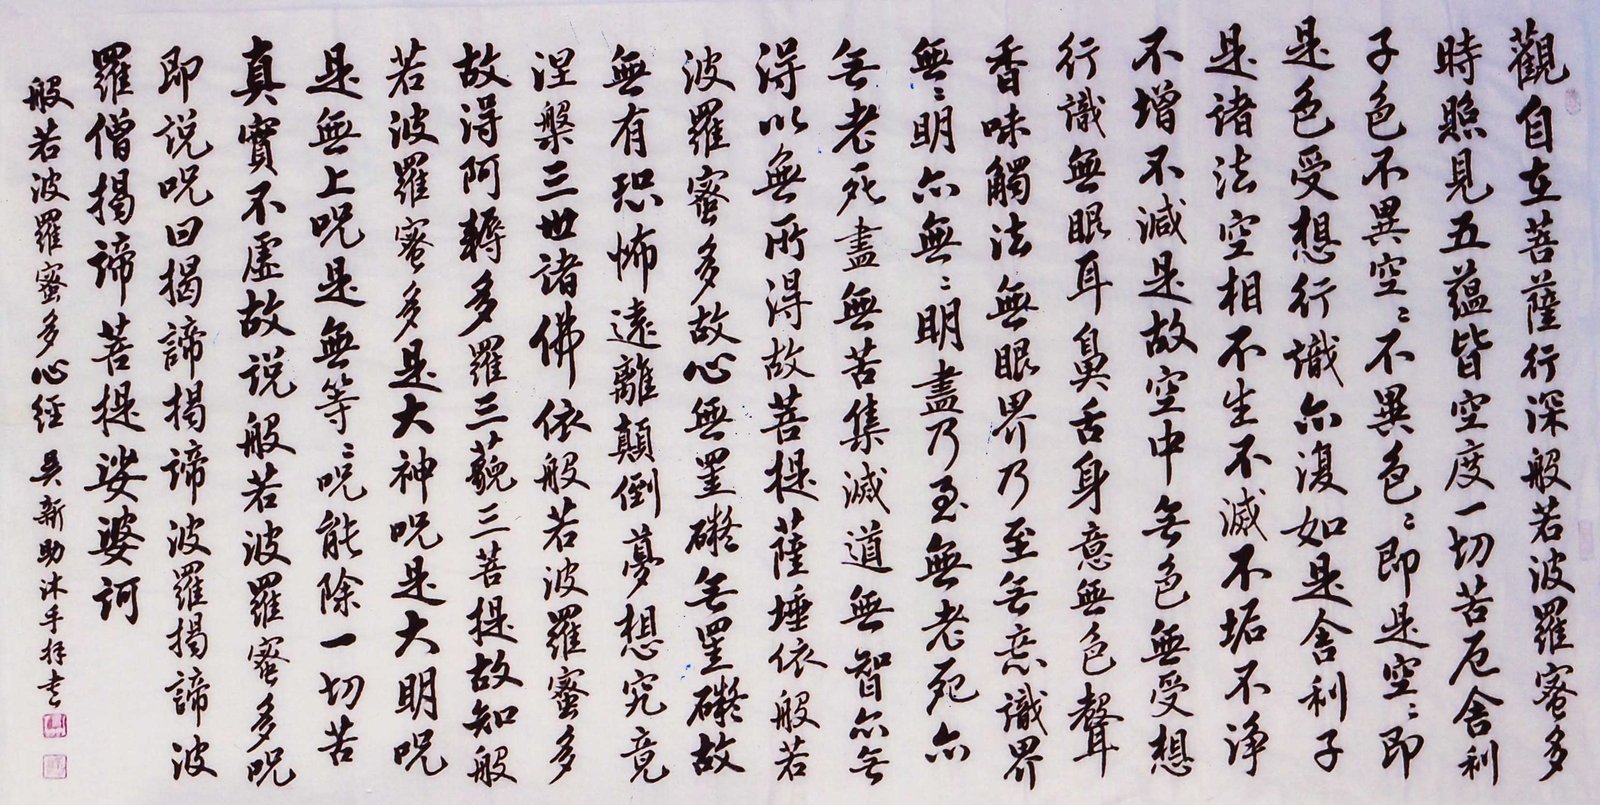 觀自在菩薩行深般若波羅蜜多
時照見五蘊皆空度一切苦厄舍利
子色不異空〻不異色〻即是空〻即
是色受想行識亦復如是舍利子
是諸法空相不生不滅不垢不淨
不增不減是故空中無色無受想
行識無眼耳鼻舌身意無色聲
香味觸法無眼界乃至無意識界
無〻明亦無〻明盡乃至無老死亦
無老死盡無苦集滅道無智亦無
得以無所得故菩提薩埵依般若
波羅蜜多故心無罣礙無罣礙故
無有恐怖遠離顛倒夢想究竟
涅槃三世諸佛依般若波羅蜜多
故得阿耨多羅三藐三菩提故知般
若波羅蜜多是大神呪是大明呪
是無上呪是無等〻呪能除一切苦
真實不虛故說般若波羅蜜多呪
即說呪曰揭諦揭諦波羅揭諦波
羅僧揭諦菩提娑婆訶
般若波羅蜜多心經 吳新助沐手拜書